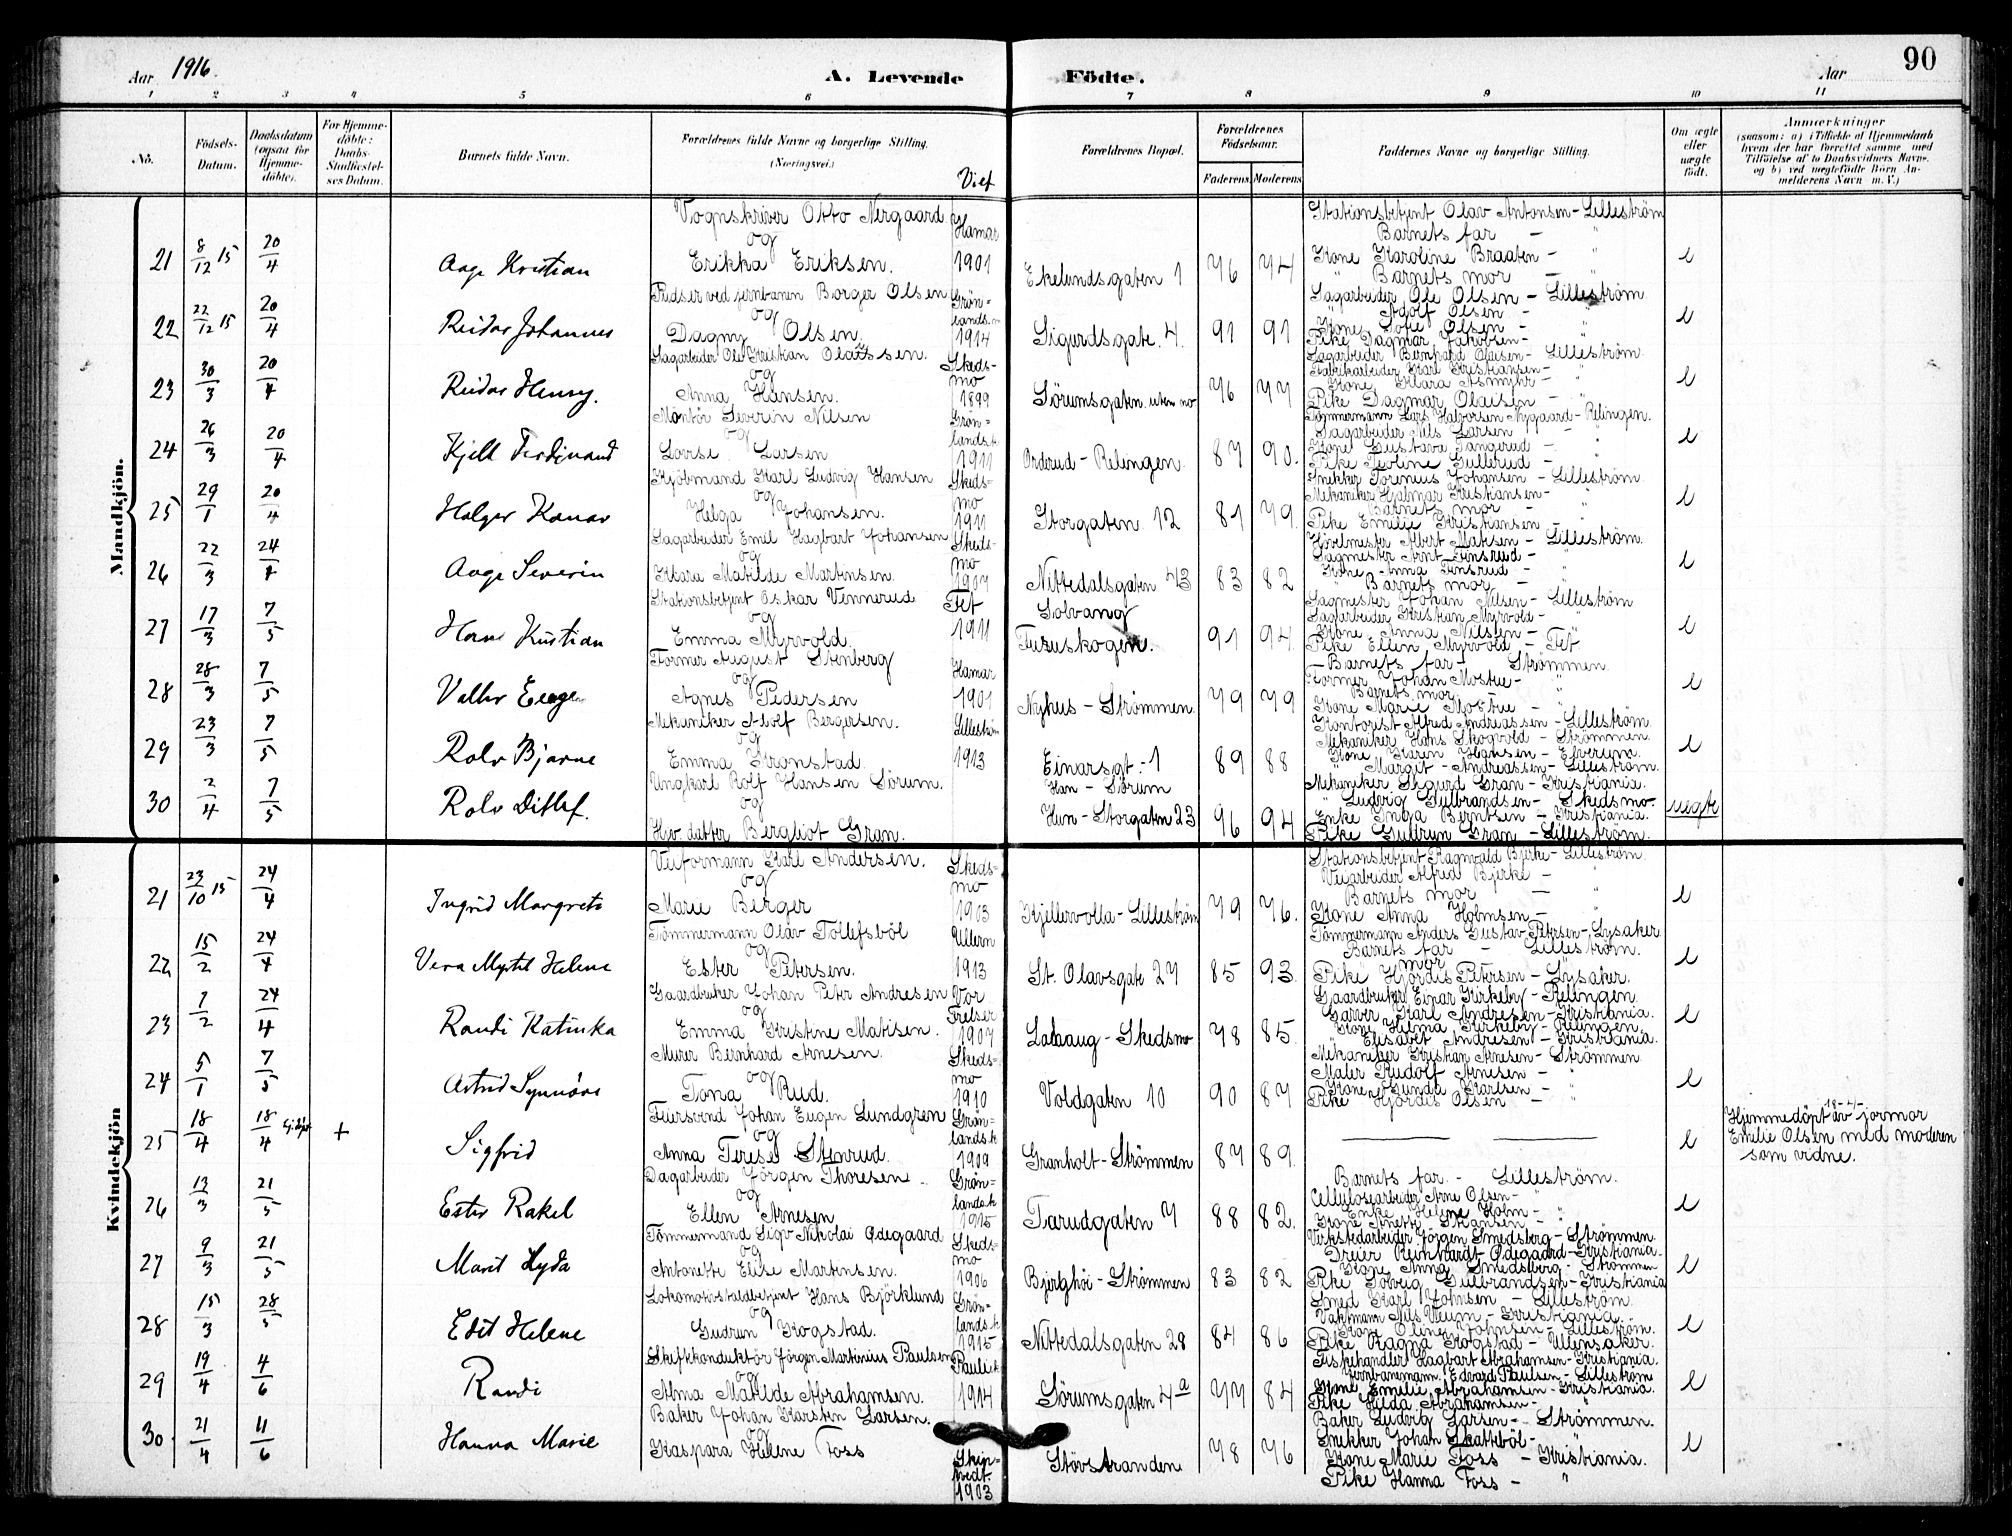 90
Aar 1916.
A. Levende Födte.
Aar
1 2 3 4 5 6 7 8 9 10 11
No.
Födsels-Datum.
Daabsdatum (ogsaa for Hjemmedöbte).
For Hjemmedöbte: Daabs-Stadfæstelses Datum.
Barnets fulde Navn.
Forældrenes fulde Navne og borgerlige Stilling. (Næringsvei.)
Viet
Forældrenes Bopæl.
Forældrenes Födselsaar.
Faderens Moderens
Faddernes Navne og borgerlige Stilling.
Om ægte eller uægte födt.
Anmærkninger
(saasom: a) i Tilfælde af Hjemmedaab hvem der har forrettet samme, med Tilföielse af to Daabsvidners Navne, og b) ved uægtefödte Börn Anmelderens Navn m. V.)
Mandkjön.
21 8/12 15 20/4 Aage Kristian
Vognskriver Otto Nergaard og Erikka Eriksen.
Hamar 1901
Ekelundsgaten 1 76 74
Stationsbetjent Olav Antonsen - Lilleström
Barnets far - "
Kone Karoline Braaten - "
" Barnets mor - "
e
22 22/12 15 20/4 Reidar Johannes
Pudser ved jernbanen Borger Olsen og Dagny Olsen.
Grönlands.m 1914
Sigurdsgate. 4. 91 91
Sagarbeider Ole Olsen - Lilleström
" Adolf Olsen - "
Kone Sofie Olsen - "
Pike Dagmar Jakobsen - "
e
23 30/3 20/4 Reidar Henry.
Sagarbeider Ole Kristian Olaissen. og Anna Hansen.
Skedsmo 1899
Sörumsgaten. uten no 76 77
Sagarbeider Bernhard Olaisen - Lilleström
Fabrikarbeider Karl Kristiansen - "
Kone Klara Asmyhr - "
Pike Dagmar Olaisen - "
e
24 26/3 20/4 Kjell Ferdinand
Montör Severin Nilsen og Lovise Larsen
Grönlands.k 1911
Orderud - Relingen. 87 90.
Tömmermann Lars Halvorsen Nygaard - Relingen.
Sagarbeider Nils Larsen - "
Kone Gustava Tangerud - "
Pike Teoline Gullerud - "
e
25 29/1 20/4 Holger Ranar
Kjöbmand Karl Ludvig Hansen og Helga Johansen.
Skedsmo 1911
Storgaten 12 81 79.
Snekker Torenius Johansen - Lilleström
Mekaniker Hjalmar Kristiansen - "
Barnets mor - "
Pike Emilie Kristiansen - "
e
26 22/3 24/4 Aage Severin
Sagarbeider Emil Hagbart Johansen og Klara Matilde Martinsen.
Skedsmo 1907
Nittedalsgaten 43 83 82
Hövelmester Albert Matisen - Lilleström.
Sagmester Arnt Finsrud - "
Kone Anna Finsrud - "
" Barnets mor - "
e
27 17/3 7/5 Hans Kristian
Stationsbetjent Oskar Vennerud og Emma Myrvold.
Fet 1911
Solvang
Furuskogen. 91 94.
Sagmester Johan Nilsen - Lilleström
Sagarbeider Kristian Myrvold - "
Kone Anna Nilsen - "
Pike Ellen Myrvold - Fet
e
28 28/3 7/5
Former August Stenberg og Agnes Pedersen
Hamar 1901
Nyhus - Strömmen. 79 79
Barnets far - Strömmen.
Former Johan Moskue - "
Barnets mor - "
Kone Marie Moskue - "
e
29 23/3 7/5 Rolv Bjarne
Mekaniker Adolf Bergersen. og Emma Kronstad.
Lilleström 1913
Einarsgt. - 1 89 88
Kontorist Alfred Andreassen - Lilleström.
Mekaniker Hans Skogvold - Strömmen.
Kone Karen Hansen - Elverum.
" Margit Andreassen - Lilleström.
e
30 2/4 7/5 Rolv Ditlef.
Ungkarl Rolf Hansen Sörum. og Hv. datter Bergliot Gran.
Han - Sörum
Hun - Storgaten 23 96 94
Mekaniker Sigurd Gran - Kristiania.
" Ludvig Gulbrandsen - Skedsmo.
Enke Inga Berntsen - Kristiania.
Pike Gudrun Gran - Lilleström.
uegte
Kvindekjön
21 23/10 15 24/4 Ingrid Margrete
Veiformann Karl Andersen. og Marie Berger
Skedsmo 1903
Kjellervolla - Lilleström 79 76.
Stationsbetjent Ragnvald Bjerke - Lilleström
Veiarbeider Alfred Bjerke - "
Barnets mor - "
Kone Anna Holmsen - "
e
22 15/2 24/4 Vera Myrtel Helene
Tömmermann Olav Tollefsböl og Ester Petersen.
Ullern 1913
St. Olavsgate 27 85 93.
Tömmermann Anders Gustav Petersen - Lysaker.
Barnets far - Lilleström.
" mor - "
Pike Hjördis Petersen - Lysaker.
e
23 7/2 24/4 Randi Katinka
Gaardbruker Johan Peter Andresen og Emma Kristine Matisen.
Vor Frelser 1907
Labaaug - Skedsmo 78 85.
Gaardbruker Einar Kirkeby - Relingen.
Garver Karl Andresen - Kristiania.
Kone Helma Kirkeby - Relingen.
" Elisabet Andresen - Kristiania.
e
24 5/1 7/5 Astrid Synnöve
Murer Bernhard Arnesen. og Tona Rud.
Skedsmo 1910
Voldgaten 10 90 87
Mekaniker Kristian Arnesen - Strömmen.
Maler Rudolf Arnesen - "
Kone Gunda Karlsen - "
Pike Hjördis Olsen - "
e
25 18/4 18/4 + Sigfrid
Feiersvend Johan Eugen Lundgren og Anna Terese Stenrud.
Grönlands.k 1909
Granholt - Strömmen 87 89.
e
Hjemmedöpt 18-4- av jormor Emelie Olsen med moderen som vidne.
26 13/3 21/5 Ester Rakel
Dagarbeider Jörgen Thoresen og Ellen Arnesen
Grönlands.k 1915
Tarudgaten 7 88 82.
Barnets far. - Lilleström.
Cellulosearbeider Arne Olsen - "
Enke Helene Holm - "
Kone Anette Stiansen - "
e
27 9/3 21/5 Marit Lyda
Tömmermand Sigv. Nikolai Ödegaard og Antonette Elise Martinsen.
Skedsmo 1906
Bjerghöi - Strömmen 83 82
Verkstedarbeider Jörgen Smedsberg - Strömmen
Dreier Reinhardt Ödegaard - Kristiania.
Kone Anna Smedsberg - Strömmen
Pike Solveig Gulbrandsen - Kristiania
e
28 15/3 28/5 Edit Helene
Lokomotivstaldbetjent Hans Björklund og Gudrun Kogstad.
Grönlands.k 1915
Nittedalsgaten 28 84 86
Smed Karl Johnsen - Lilleström.
Vaktmann Nils Veum - Kristiania.
Kone Oline Johnsen - Lilleström.
Pike Ragna Kogstad - Ullensaker.
e
29 19/4 4/6 Randi
Skiftkonduktör Jörgen Martinius Paulsen og Alma Matilde Abrahamsen.
Pauls.k 1914
Sörumsgaten 4a 77 84
Fiskehandler Hagbart Abrahamsen - Kristiania.
Jernbanemann Edvard Paulsen - Lilleström
Kone Emelie Abrahamsen - Kristiania.
Pike Hilda Abrahamsen - "
e
30 21/4 11/6 Hanna Marie
Baker Johan Karsten Larsen. og Kaspara Helene Foss
Skiptvedt 1903
Stövstranden 78 76
Baker Ludvig Larsen - Strömmen.
Snekker Johan Skatteböl - "
Kone Marie Foss - Kristiania.
Pike Hanna Foss - "
e